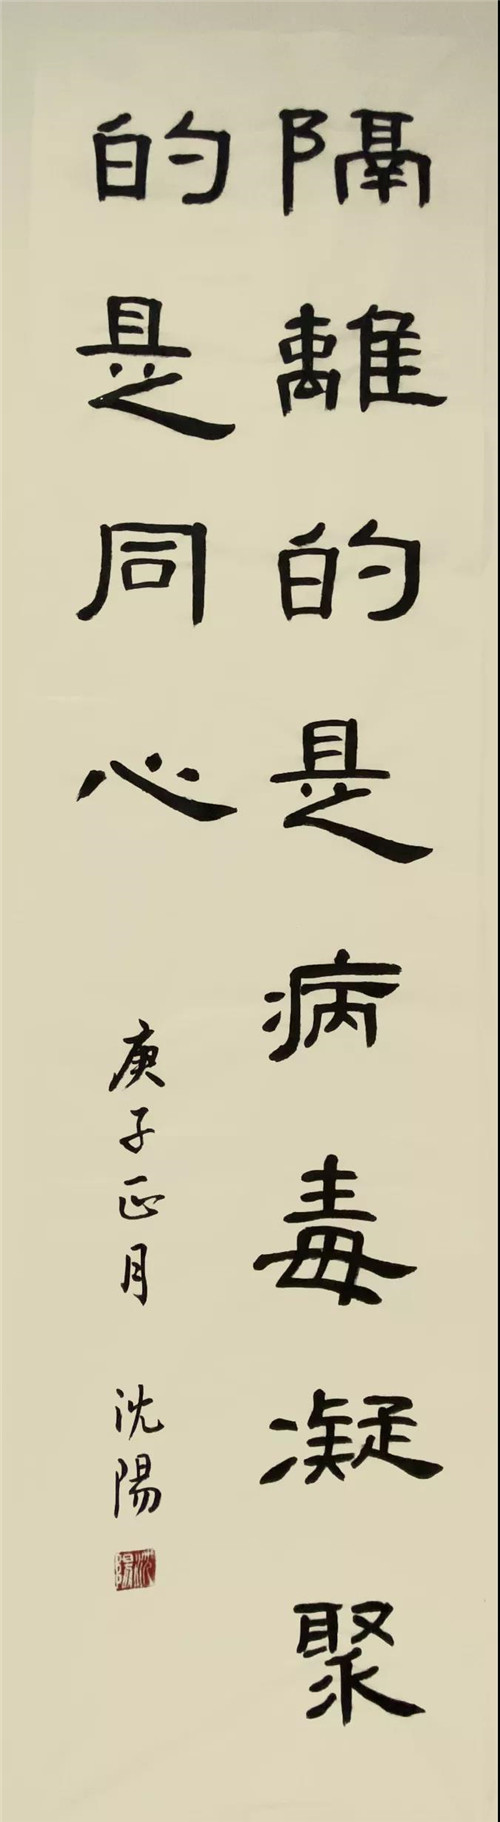 隔離的是病毒凝聚
的是同心
庚子正月 沈陽
沈陽